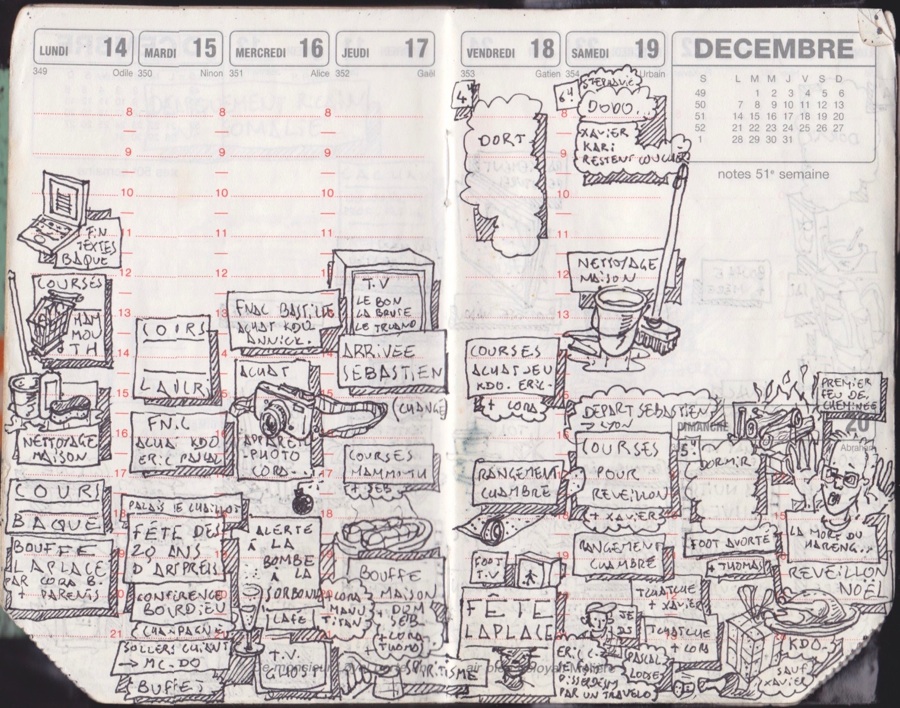 LUNDI 14
349 Odile
8
9
10
11
12
13
14
15
16
17
18
19
20
21
FIN
TEXTES
BAQUE
COURSES
MAM
MOU
TH
NETTOYAGE
MAISON
COURS
BAQUE
BOUFFE
LAPLACE
PAR CORA B.
+ PARENTS
MARDI 15
350 Ninon
COURS
LAJCR
FN.C
ACHAT KDO
ERIC PASCAL
PALAIS DE CHAILLOT
FÊTE DES
20 ANS
D'ARTPRESS
CONFÉRENCE
BOURDIEU
(CHAMPAGNE)
SOLLERS CHIANT
→ MC.DO
BUFFET
MERCREDI 16
351 Alice
FNAC BASTILLE
ACHAT KDO
ANNICK.
ACHAT
APPAREIL
-PHOTO
CORA..
ALERTE
À LA
BOMBE
À
LA
SORBONNE
CAFÉ
T.V.
GHOST
JEUDI 17
352 Gaël
T.V
LE BON
LA BRUTE
LE TRUAND
ARRIVÉE
SEBASTIEN
(CHANGE)
COURSES
MAMMOUTH
+ SEB.
BOUFFE
MAISON
+ DOM
SEB.
+ CORA
+ THOMAS
CORA
MANU
TITAN
SPIRITISME
VENDREDI 18
353 Gatien
4H
DORT
COURSES
ACHAT JEU
KDO. ERIC-
+ CORA
RANGEMENT
CHAMBRE
FOOT
T.V
FÊTE
LAPLACE
SAMEDI 19
354 Urbain
6H
STEPHANIE
DODO.
XAVIER
KARI
RESTENT COUCHER
NETTOYAGE
MAISON
DEPART SEBASTIEN
→ LYON
COURSES
POUR
REVEILLON
+ XAVIER
RANGEMENT
CHAMBRE
ERIC C.
PAR UN TRAVELO
PASCAL
TCHATCHE
+ XAVIER
DECEMBRE
S L M M J V S D
49 1 2 3 4 5 6
50 7 8 9 10 11 12 13
51 14 15 16 17 18 19 20
52 21 22 23 24 25 26 27
1 28 29 30 31
notes 51e semaine
DIMANCHE 20
5H
DORMIR
FOOT AVORTÉ
+ THOMAS
TCHATCHE
+ CORA
PREMIER
FEU DE
CHEMINÉE
LA MORT DU
HARENG...
REVEILLON
NOËL
KDO.
SAUF
XAVIER